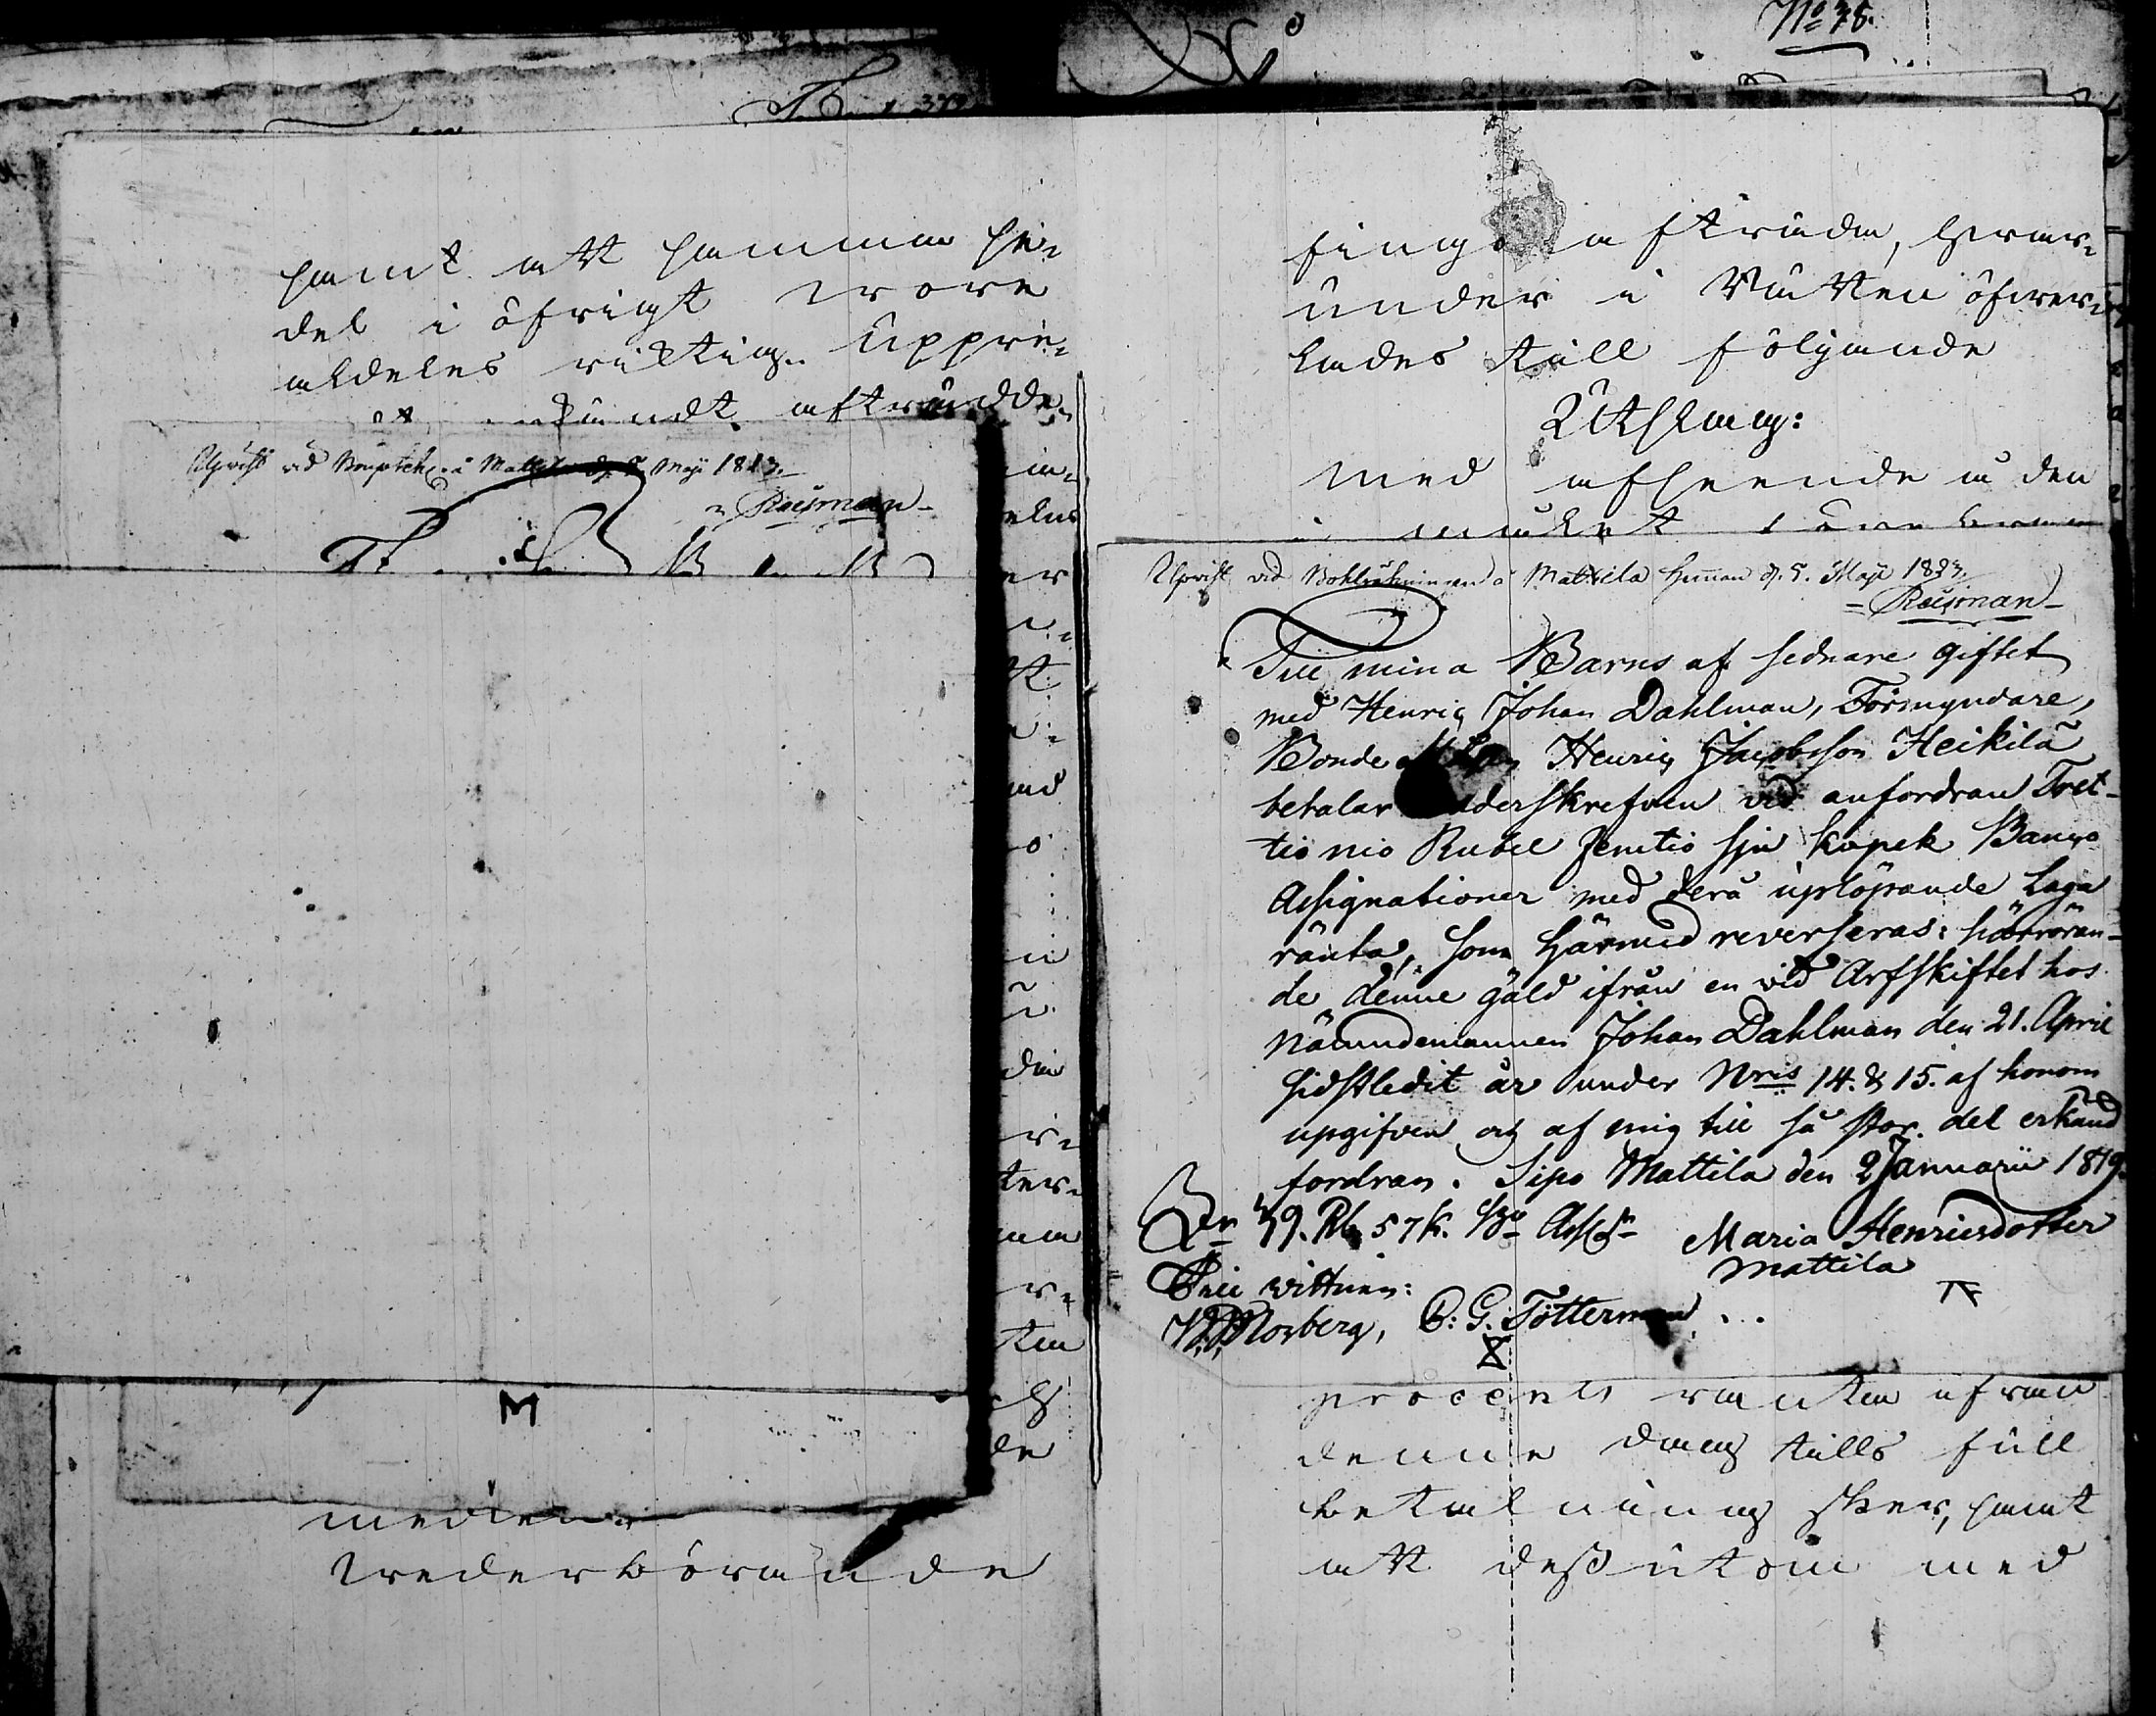 No 75.
samt att samma he-
del i öfrigt wore
aldeles riktig. Uppre-
afträdde
Upvist vid Bouptekn. å Mattila d. 5 Maji 1823.
Reisman
medlen.
Wederbörande
fingo afträda, hvar-
under i Rätten öfver-
lades till följande
Utslag:
Med afseende å den
Upvist vid Bokräkningen å Mattila Hemman d. 5. Maji 1823.
Reisman
Till mina Barns af sednare giftet
med Henric Johan Dahlman, Förmyndare,
Bonde Henric Jacobsson Heikilä
betalar underskrefven vid anfordran Tret-
tio nio Rubel femtio sju kopek Banco
Assignationer med derå uplöpande Laga
ränta, som härmed reverseras: härrören-
de denne gäld ifrån en vid Arfskiftet hos
Nämndemannen Johan Dahlman den 21. April
sidstledit år under Nris 14. & 15. af honom
upgifven och af mig till så stor del erkänd
fordran. Sipo Mattila den 2 Januarii 1819.
39. Rb. 57 k. Bo Assgr
Maria Henricsdotter
Mattila
Till wittnen:
Norberg, C: G. Tötterman
procents räntan ifrån
denne dag tills full
betalning sker, samt
att dessutom med